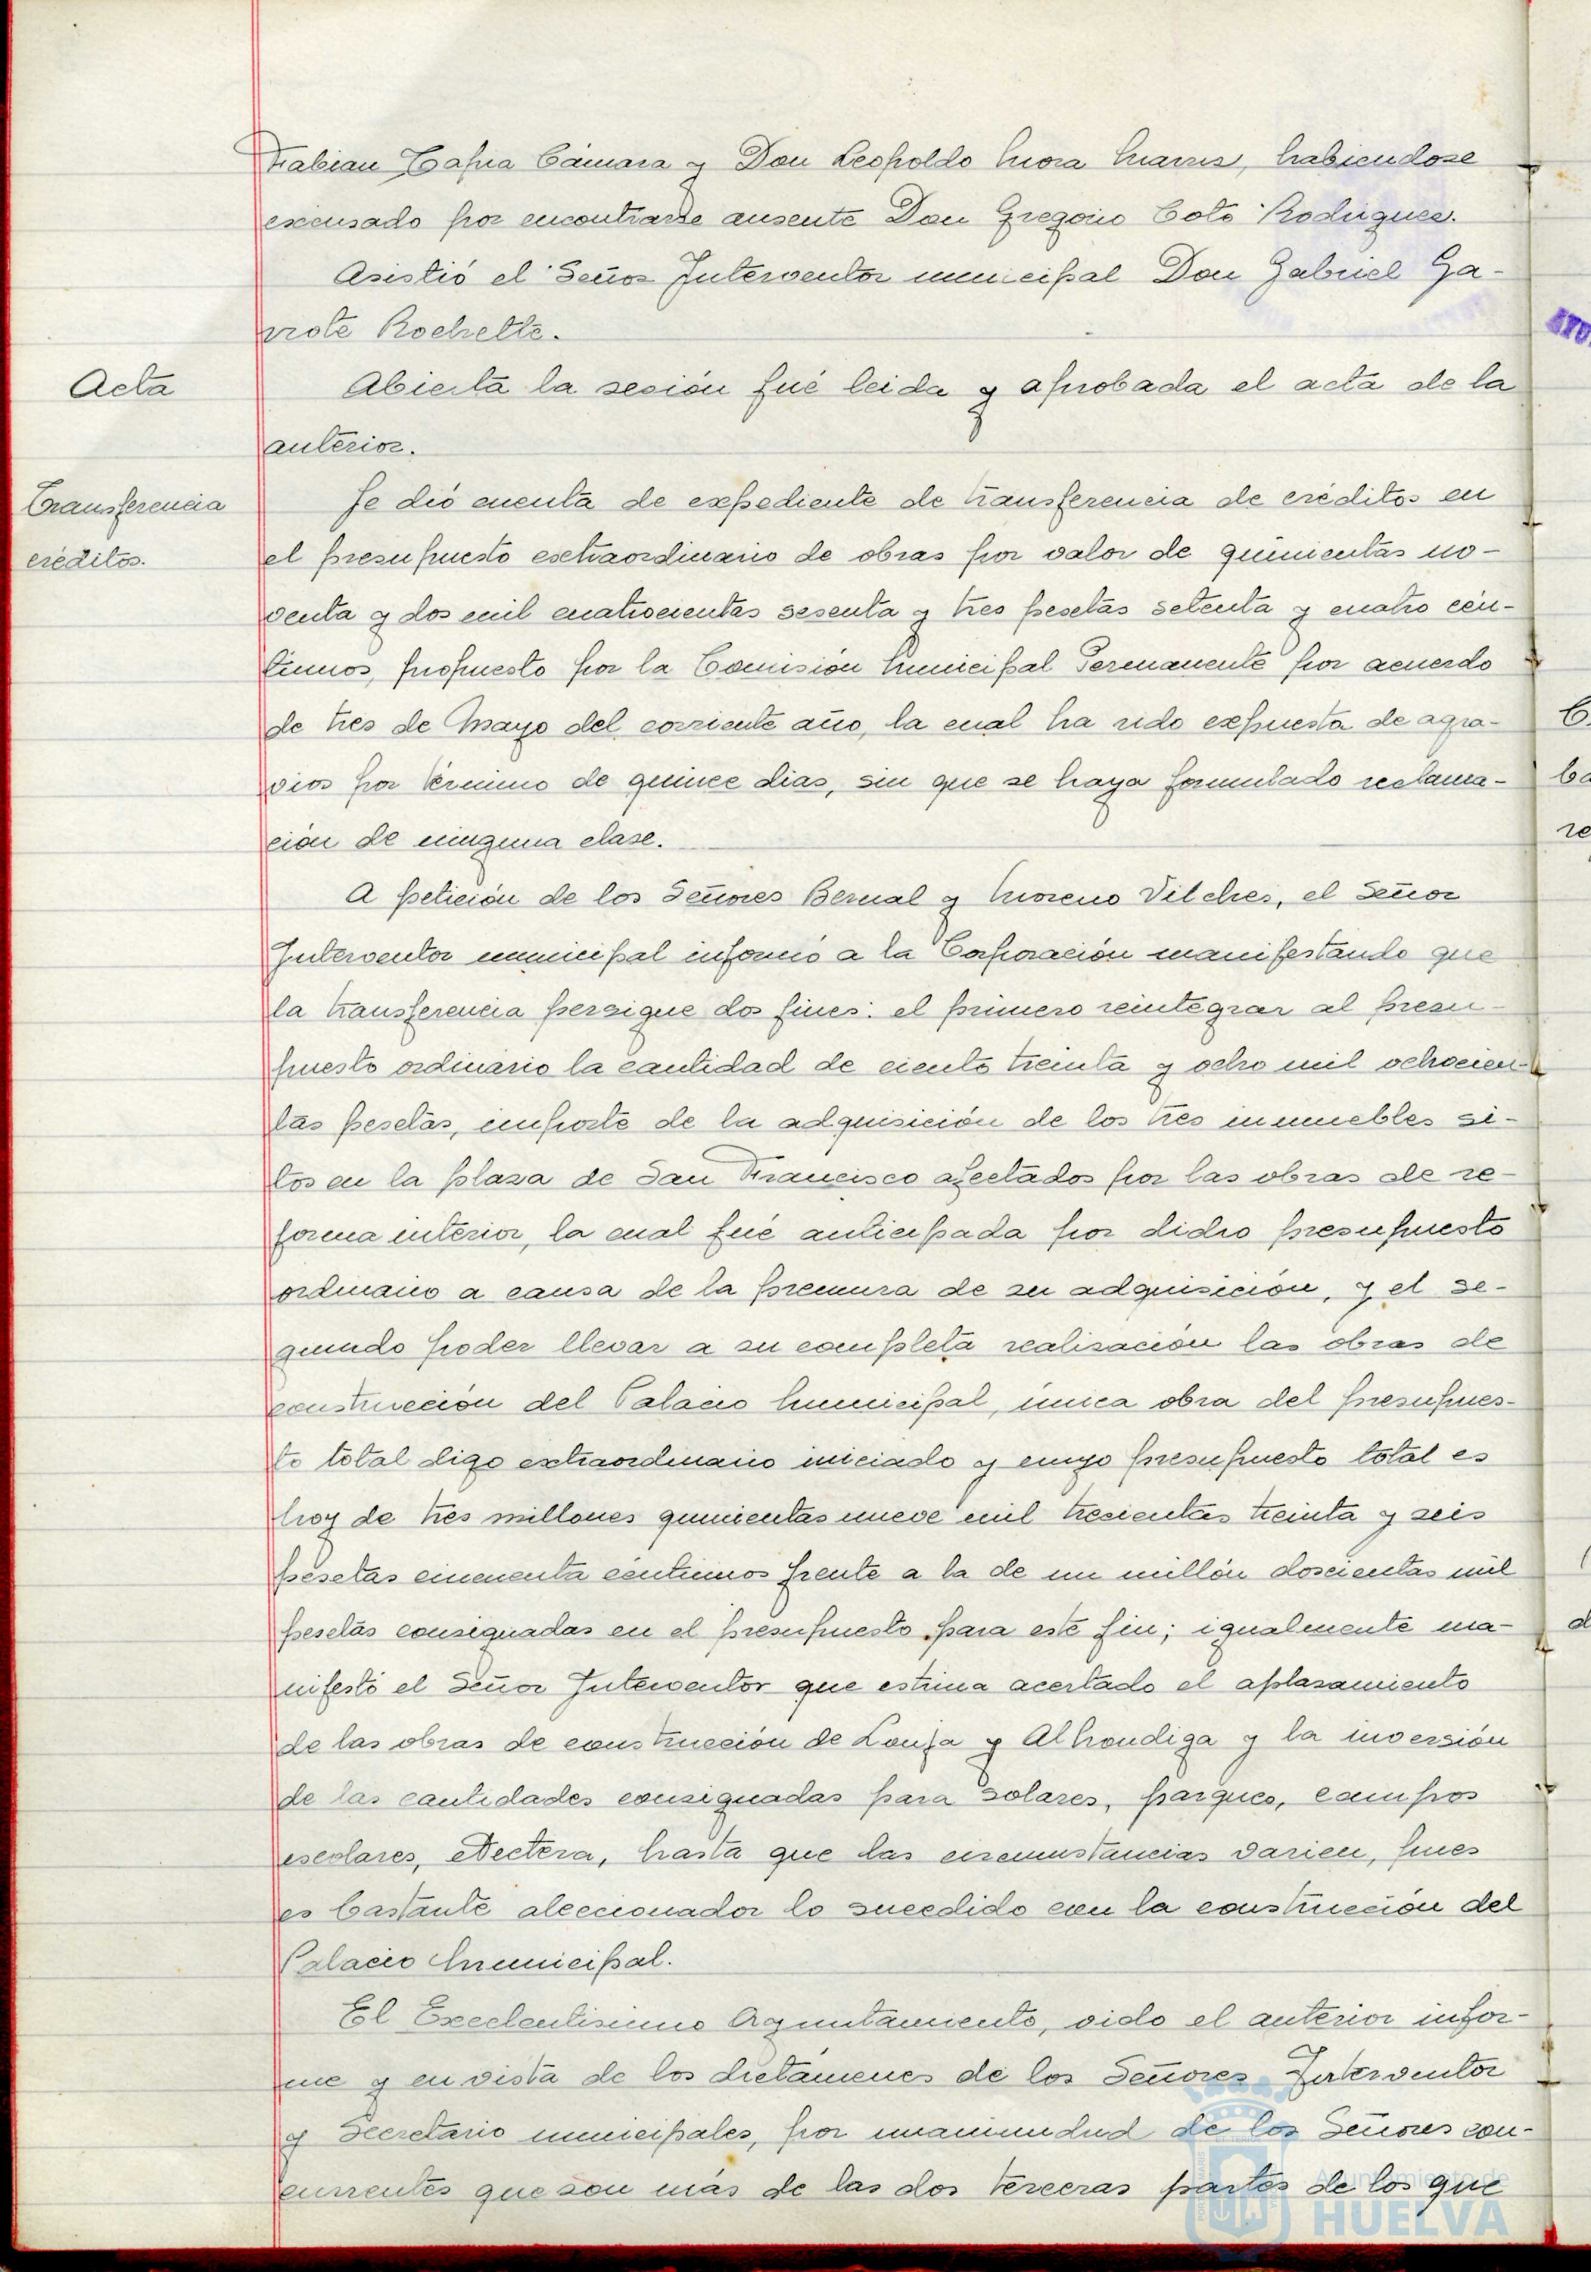 Fabian Tapia Cámara y Don Leopoldo Mora Marris, habiendose
excusado por encontrarse ausente Don Gregorio Coto Rodriguez.
Asistió el Señor Interventor municipal Don Gabriel Ga-
rrote Rochette.
Acta
Abierta la sesión fué leida y aprobada el acta de la
anterior.
Transferencia
créditos.
Se dió cuenta de expediente de transferencia de créditos en
el presupuesto extraordinario de obras por valor de quinientas no-
venta y dos mil cuatrocientas sesenta y tres pesetas setenta y cuatro cén-
timos, propuesto por la Comisión Municipal Permanente por acuerdo
de tres de Mayo del corriente año, la cual ha sido expuesta de agra-
vios por término de quince dias, sin que se haya formulado reclama-
ción de ninguna clase.
A petición de los Señores Bernal y Moreno Vilches, el Señor
Interventor municipal informó a la Corporación manifestando que
la transferencia persigue dos fines: el primero reintegrar al presu-
puesto ordinario la cantidad de ciento treinta y ocho mil ochocien-
tas pesetas, importe de la adquisición de los tres inmuebles si-
tos en la plaza de San Francisco afectados por las obras de re-
forma interior, la cual fué anticipada por dicho presupuesto
ordinario a causa de la premura de su adquisición, y el se-
gundo poder llevar a su completa realización las obras de
construcción del Palacio Municipal, única obra del presupues-
to total digo extraordinario iniciado y cuyo presupuesto total es
hoy de tres millones quinientas nueve mil trescientas treinta y seis
pesetas cincuenta céntimos frente a la de un millón doscientas mil
pesetas consignadas en el presupuesto para este fin; igualmente ma-
nifestó el Señor Interventor que estima acertado el aplazamiento
de las obras de construcción de Lonja y Alhondiga y la inversión
de las cantidades consignadas para solares, parques, campos
escolares, etectera, hasta que las circunstancias varien, pues
es bastante aleccionador lo sucedido con la construcción del
Palacio Municipal.
El Excelentisimo Ayuntamiento, oido el anterior infor-
me y en vista de los dictámenes de los Señores Interventor
y Secretario municipales, por unanimidad de los Señores con-
currentes que son más de las dos terceras partes de los que
Ayuntamiento de
HUELVA